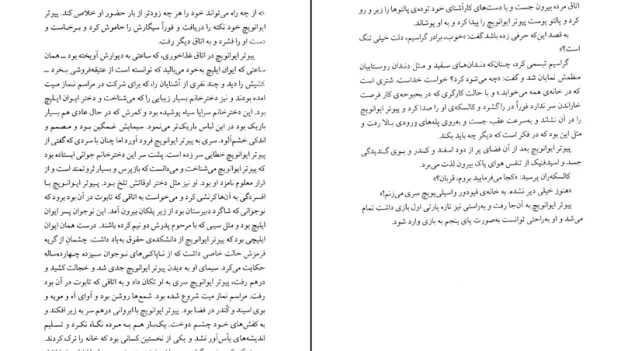 از چه راه می‌تواند خود را هر چه زودتر از بار حضور او خلاص کند. پیوتر
ایوانویچ خود نکته را دریافت و فوراً سیگارش را خاموش کرد و برخاست و
دست او را فشرد و به اتاق دیگر رفت.
پیوتر ایوانویچ در اتاق غذاخوری، که ساعتی به دیوارش آویخته بود ـ همان
ساعتی که ایوان ایلیچ به خود می‌بالید که توانسته است از عتیقه‌فروشی بخرد ـ
کشیش را دید و چند نفری از آشنایان را، که برای شرکت در مراسم نماز میت
آمده بودند و نیز دخترخانم بسیار زیبایی را که می‌شناخت و دختر ایوان ایلیچ
بود. این دخترخانم سراپا سیاه پوشیده بود، و کمرش که در حال عادی هم بسیار
باریک بود در این لباس باریک‌تر می‌نمود. سیمایش غمگین بود و مصمم و
اندکی خشم‌آلود. سری به پیوتر ایوانویچ فرود آورد اما چنان با سردی که گفتی از
پیوتر ایوانویچ خطایی سر زده است. پشت سر این دخترخانم جوانی ایستاده بود
که پیوتر ایوانویچ می‌شناخت و می‌دانست که بازپرس و بسیار ثروتمند است و از
قرار معلوم نامزد او بود. او نیز مثل دختر اوقاتش تلخ بود. پیوتر ایوانویچ با
افسردگی به آن‌ها کرنشی کرد و می‌خواست به اتاقی که تابوت در آن بود برود که
نوجوانی که شاگرد دبیرستان بود از زیر پلکان بیرون آمد. این نوجوان پسر ایوان
ایلیچ بود و مثل سیبی که با مرحوم پدرش دو نیم کرده باشند. درست همان ایوان
ایلیچی بود که پیوتر ایوانویچ از دانشکده‌ی حقوق به‌یاد داشت. چشمان از گریه
قرمزش حالت خاصی داشت که از ناپاکی‌های نوجوان سیزده چهارده‌ساله
حکایت می‌کرد. سیمای او به دیدن پیوتر ایوانویچ جدی شد و خجالت کشید و
درهم رفت، پیوتر ایوانویچ سری به او تکان داد و به اتاقی که تابوت در آن بود
رفت. مراسم نماز میت شروع شده بود. شمع‌ها روشن بود و آوای آه و مویه و
بوی اسپند و کندر در فضا بود. پیوتر ایوانویچ با ابروانی درهم سر به زیر افکند و
به کفش‌های خود چشم دوخت. یک‌بار هم به مرده نگاه نکرد و تسلیم
اندیشه‌های یأس‌آور نشد و یکی از نخستین کسانی بود که خانه را ترک کردند.
اتاق مرده بیرون جست و با دست‌های کارآشنای خود توده‌ی پالتوها را زیر و رو
کرد و پالتو پوست پیوتر ایوانویچ را پیدا کرد و به او پوشاند.
به قصد این‌که حرفی زده باشد گفت: «خوب، برادر گراسیم، دلت خیلی تنگ
است؟»
گراسیم تبسمی کرد، چنان‌که دندان‌های سفید و مثل دندان روستاییان
منظمش نمایان شد و گفت: «چه می‌شود کرد؟ خواست خداست. شتری است
که در خانه‌ی همه می‌خوابد.» و با حالت کارگری که در بحبوحه‌ی کار فرصت
خاراندن سر ندارد فوراً در را گشود و کالسکه‌ی او را صدا کرد و پیوتر ایوانویچ
را در آن نشاند و به‌سرعت عقب جست و به‌روی پله‌های ورودی بالا رفت و
مثل این بود که در فکر است که دیگر چه باید بکند.
پیوتر ایوانویچ بعد از آن فضای پر از دود اسفند و کندر و بوی گندیدگی
جسد و اسیدفنیک از تنفس هوای پاک بیرون لذت می‌برد.
کالسکه‌ران پرسید: «کجا می‌فرمایید بروم، قربان؟»
«هنوز خیلی دیر نشده. به خانه‌ی فیودور واسیلی‌یویچ سری می‌زنم!»
پیوتر ایوانویچ به آن‌جا رفت و به‌راستی نیز تازه پارتی اول بازی داشت تمام
می‌شد و او به‌راحتی توانست به‌صورت پای پنجم به بازی وارد شود.